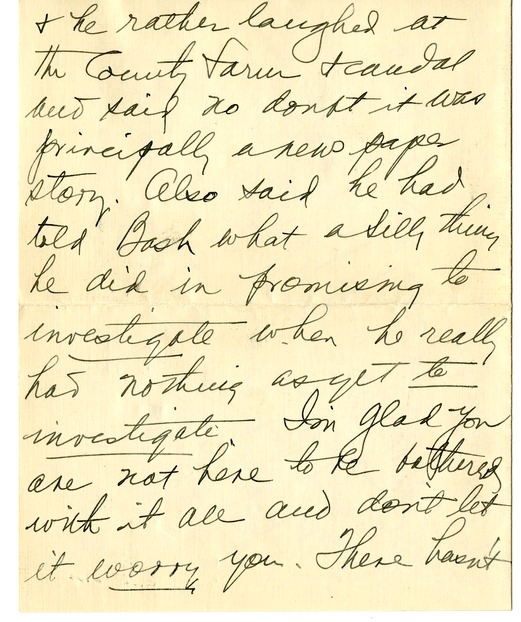 & he rather laughed at
the County Farm scandal
and said no doubt it was
principally a news paper
story. Also said he had
told Bash what a silly thing
he did in promising to
investigate when he really
had nothing as yet to
investigate. I'm glad you
are not here to be bothered
with it all and don't let
it worry you. There hasn't